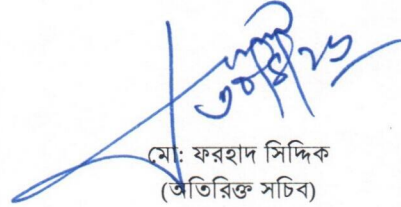 মো: ফরহাদ সিদ্দিক
(অতিরিক্ত সচিব)